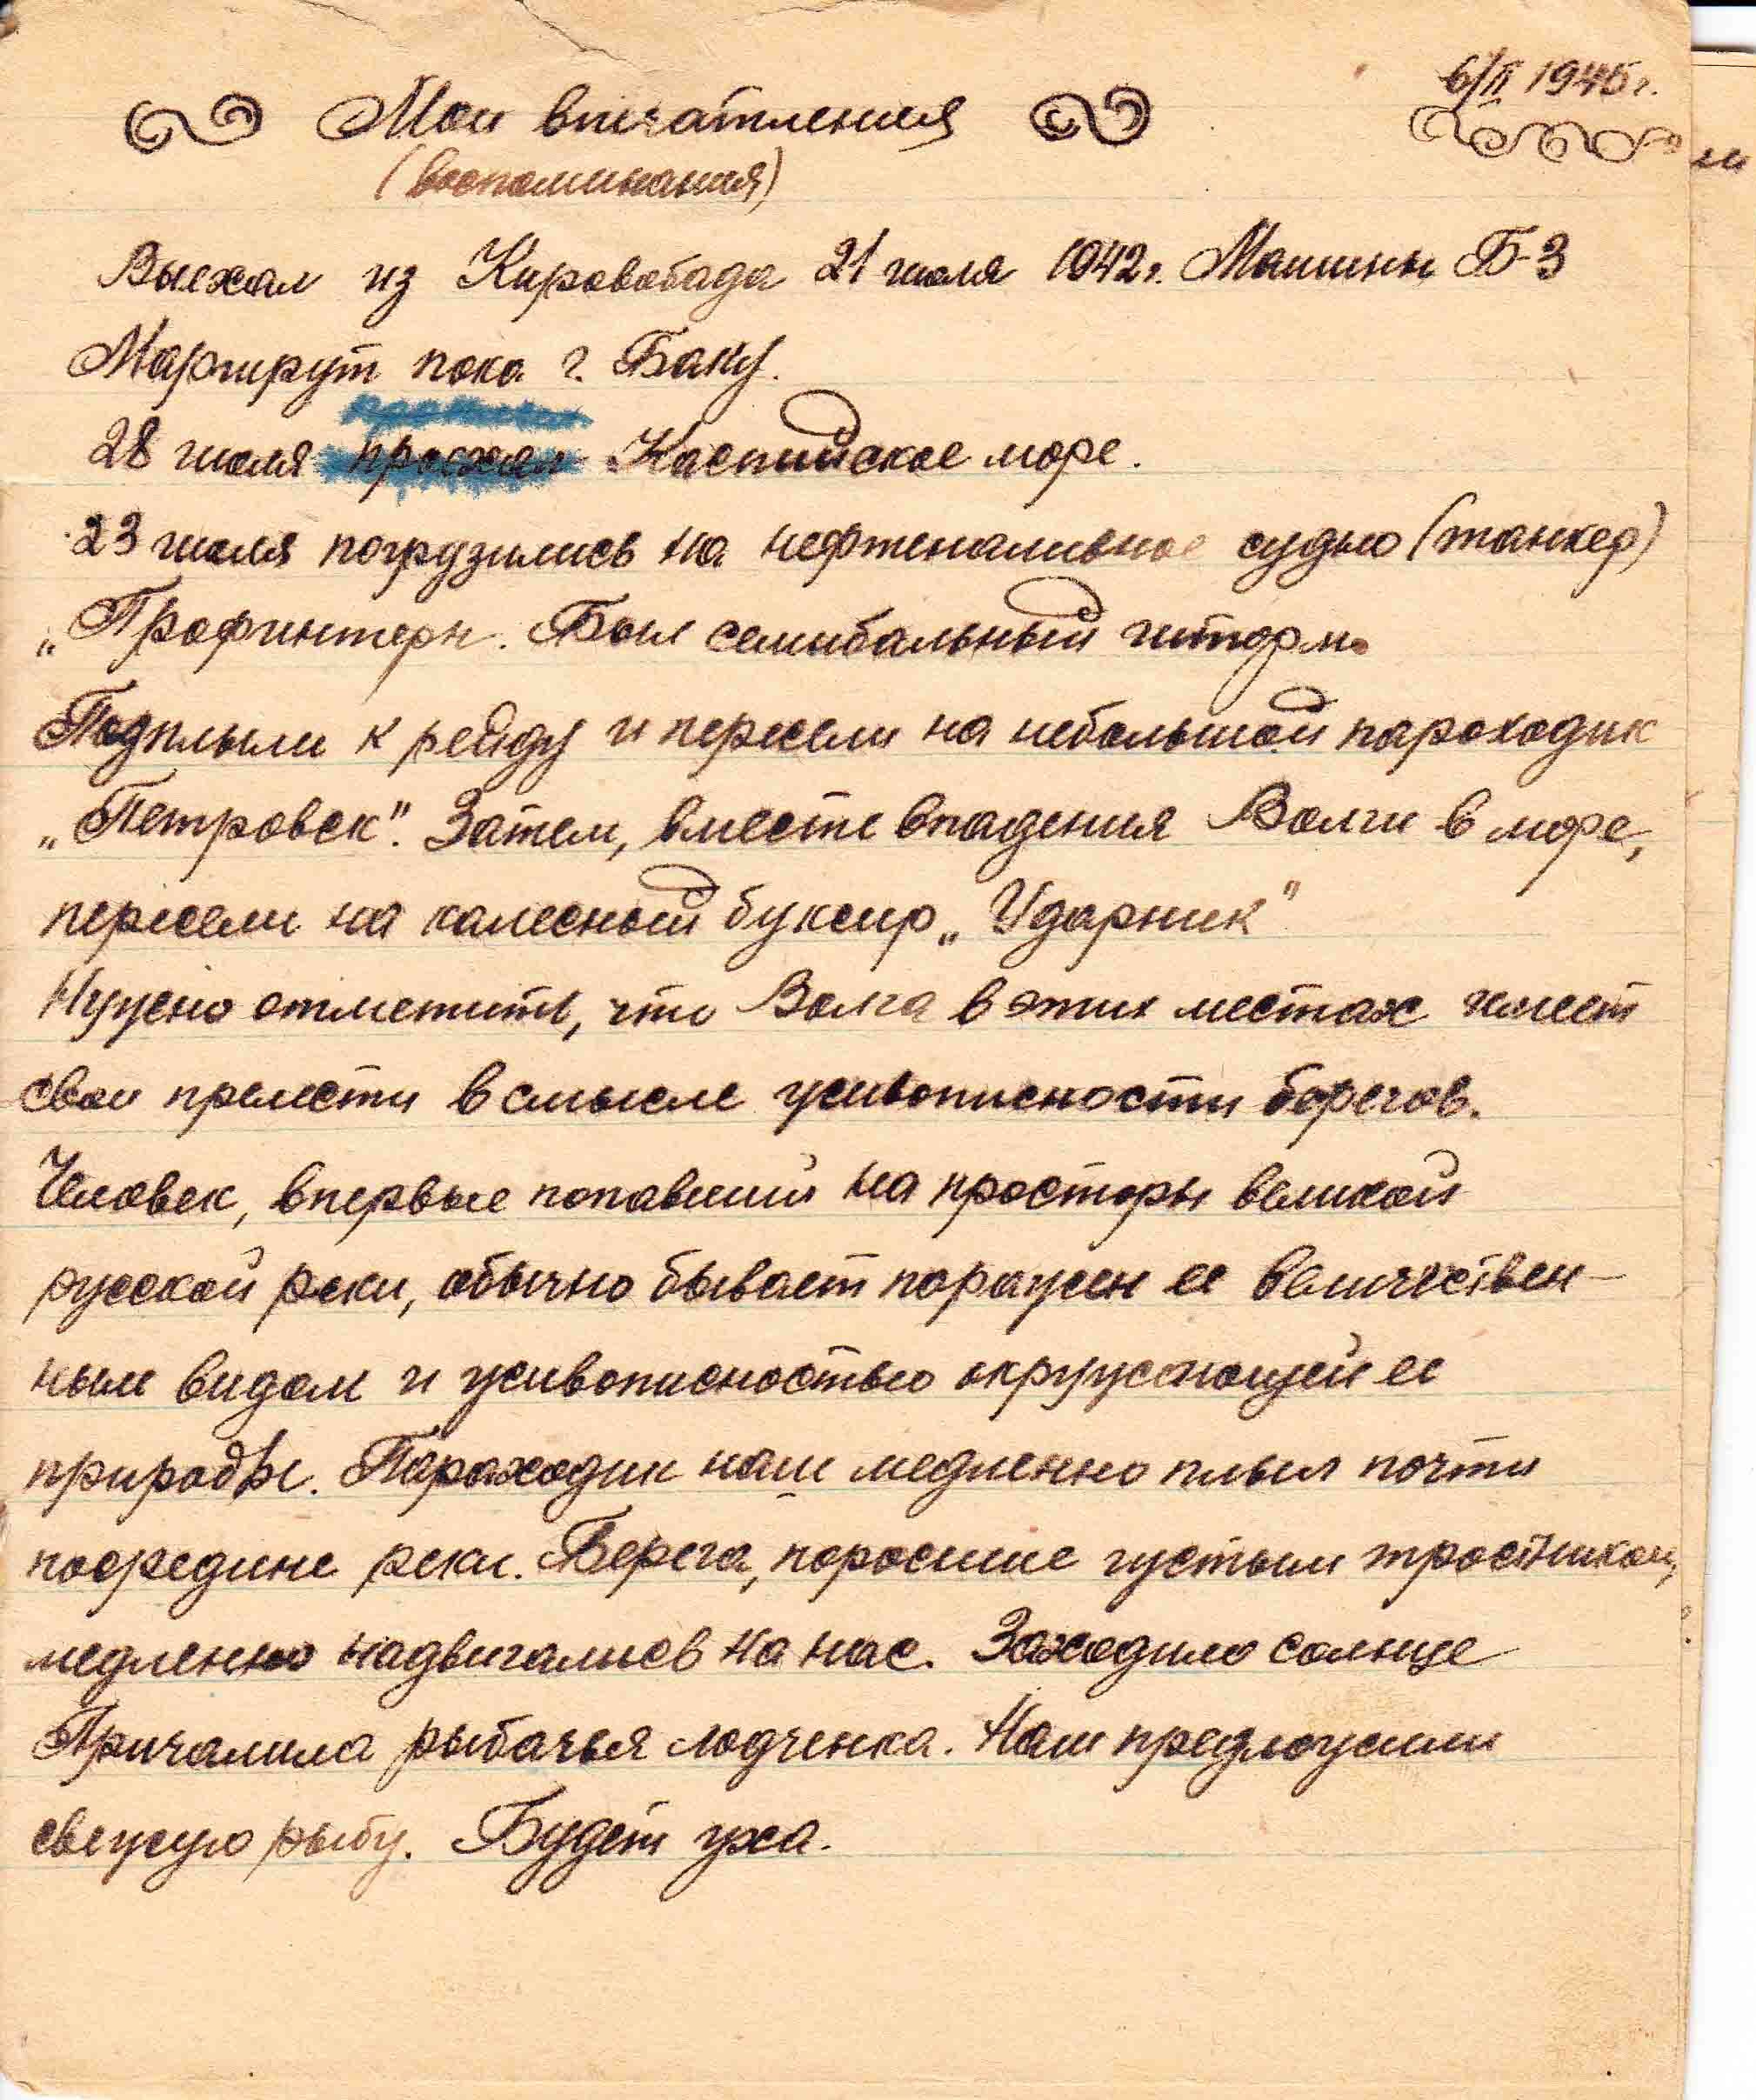 6/II 1945 г.
Мои впечатления
(воспоминания)
Выехал из Кировобада 21 июля 1942 г. Машины Б-3
Маршрут пока г. Баку.
28 июля проехал Каспийское море.
23 июля погрузились на нефтеналивное судно (танкер)
„Профинтерн. Был семибальный шторм.
Подплыли к рейду и пересели на небольшой пароходик
„Петровск". Затем, вместе впадения Волги в море,
пересели на колесный буксир „Ударник"
Нужно отметить, что Волга в этих местах имеет
свои прелести в смысле живописности берегов.
Человек, впервые попавший на просторы великой
русской реки, обычно бывает поражен ее величествен-
ным видом и живописностью окружающей ее
природы. Пароходик наш медленно плыл почти
посредине реки. Берега, поросшие густым тростником,
медленно надвигались на нас. Заходило солнце
Причалила рыбачья лодченка. Нам предложили
свежую рыбу. Будет уха.